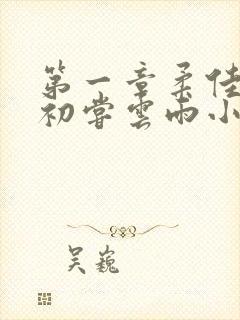 第一章柔佳
初尝雲雨小
吴巍